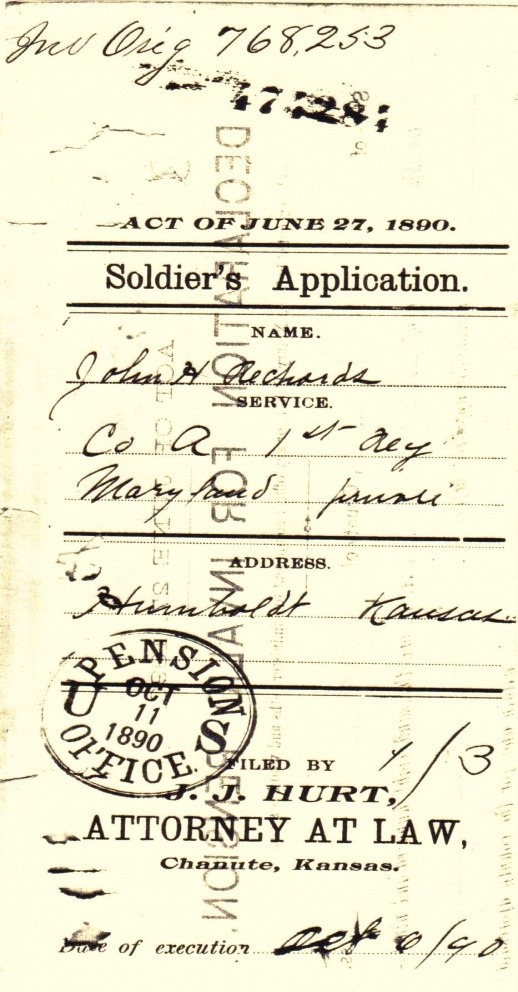 Inv Orig 768,253
ACT OF JUNE 27, 1890.
Soldier's Application.
NAME.
John H Richards
SERVICE.
Co A 1st Reg
Maryland
ADDRESS.
Humboldt Kansas
U S PENSION OFFICE.
OCT
11
1890
FILED BY
1/3
J. J. HURT,
ATTORNEY AT LAW,
Chanute, Kansas.
Date of execution Oct 6/90
DECLARATION FOR INVALID PENSION.